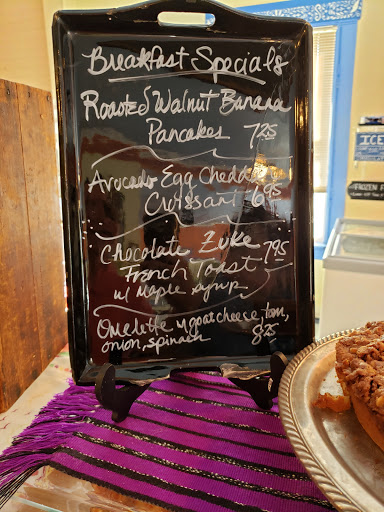 Breakfast Specials
Roasted Walnut Banana
Pancakes 7.25
Avocado Egg Cheddar
Croissant 6.95
Chocolate Zuke 7.95
French Toast
w/ Maple syrup
Omelette w goat cheese, tom,
onion, spinach 8.25
ICE
FROZEN